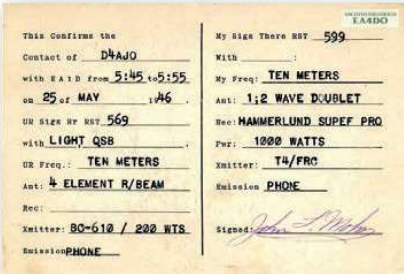 This Confirms the
Contact of D4AJO
with EA1D from 5:45 to 5:55
on 25 of MAY 1946.
UR Sigs Hr RST 569
with LIGHT QSB.
UR Freq.: TEN METERS
Ant: 4 ELEMENT R/BEAM
Rec:
Xmitter: BC-610 / 200 WTS
Emission PHONE
EA4DO
My Sigs There RST 599
With :
My Freq: TEN METERS
Ant: 1;2 WAVE DOUBLET
Rec: HAMMERLUND SUPEF PRO
Pwr: 1000 WATTS
Xmitter: T4/FRC
Emission PHONE
Signed: John L.